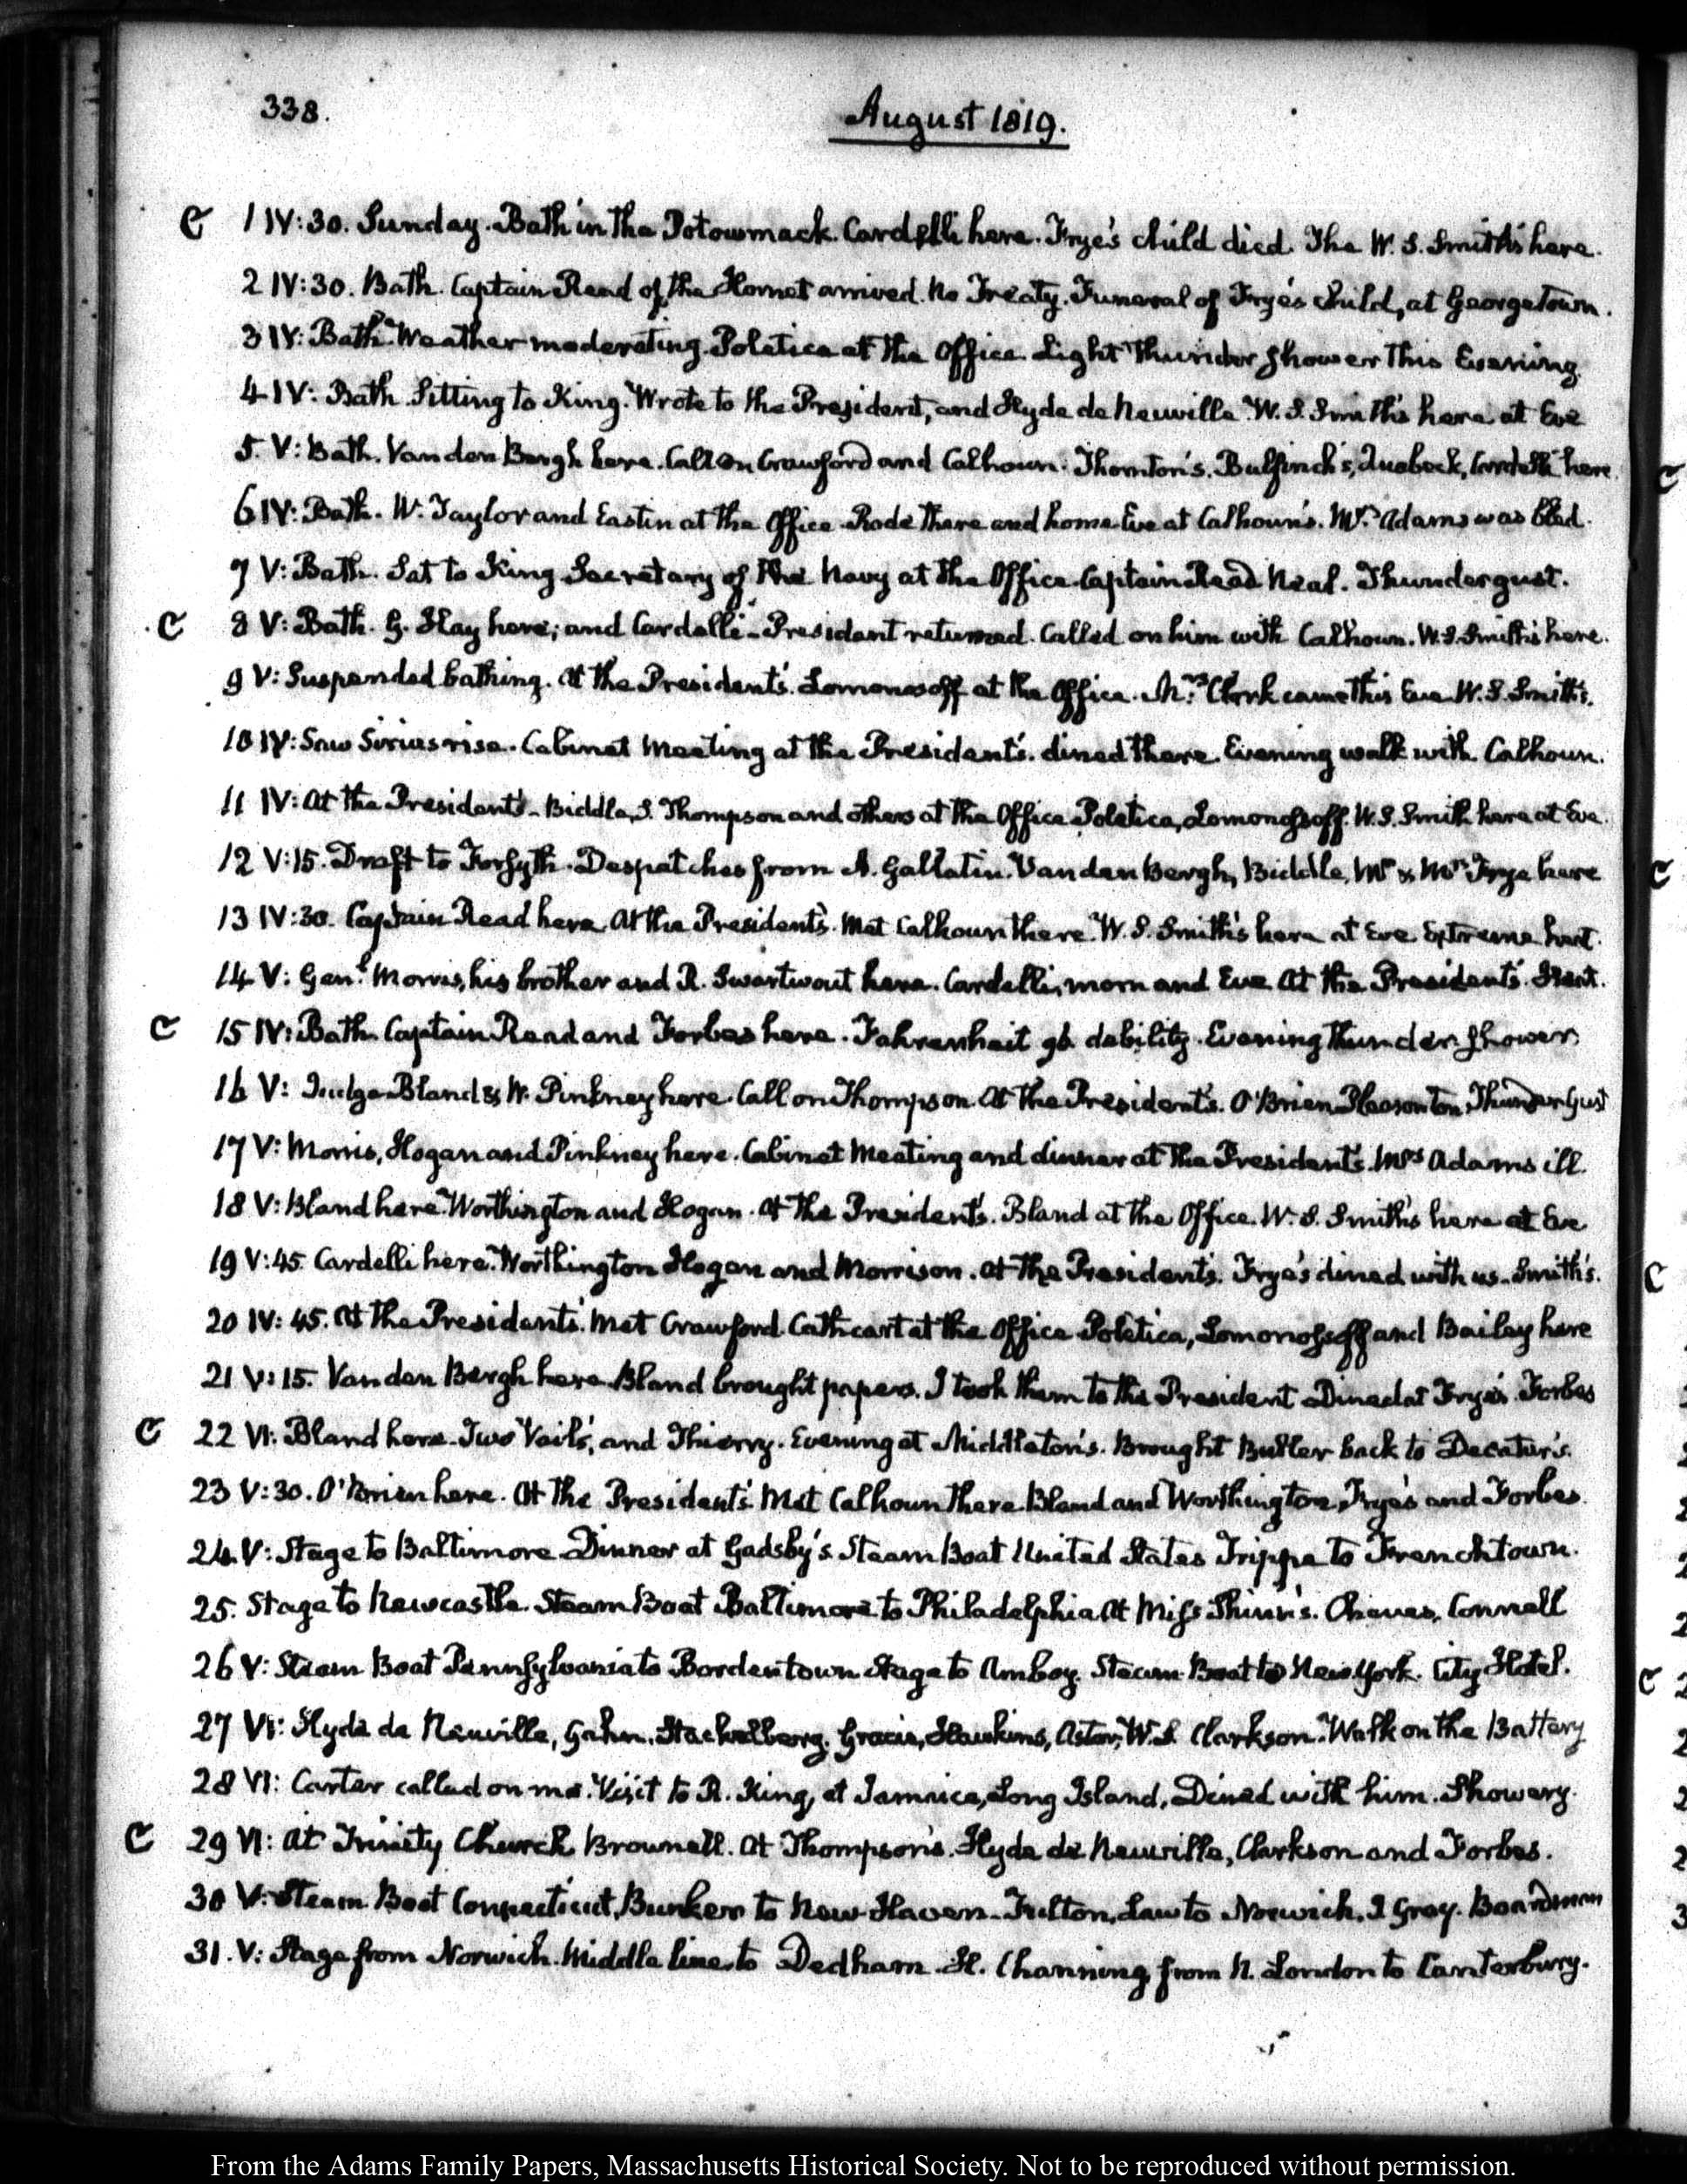 338.
August 1819.
C 1 IV:30. Sunday. Bath in the Potowmack. Cardelli here. Frye's child died. The W. S. Smith's here.
2 IV:30. Bath. Captain Read of the Hornet arrived. No Treaty. Funeral of Frye's child, at Georgetown.
3 IV: Bath. Weather moderating. Poletica at the Office. Light Thunder shower this Evening.
4 IV: Bath. Sitting to King. Wrote to the President, and Hyde de Neuville. W. S. Smith's here at Eve
5. V: Bath. Vanden Bergh here. Call on Crawford and Calhoun. Thornton's. Bulfinch's, Cardelli here.
6 IV: Bath. W. Taylor and Eastin at the Office. Rode there and home. Eve at Calhoun's. Mrs. Adams was bled.
7 V: Bath. Sat to King. Secretary of the Navy at the Office. Captain Read. Neal. Thundergust.
C 8 V: Bath. G. Hay here; and Cardelli. President returned. Called on him with Calhoun. W. S. Smith's here.
9 V: Suspended bathing. At the President's. Lomonosoff at the Office. Mrs. Clark came this Eve. W. S. Smith's.
10 IV: Saw Sirius rise. Cabinet Meeting at the President's. dined there. Evening walk with Calhoun.
11 IV: At the President's. Biddle, S. Thompson and others at the Office. Poletica, Lomonossoff. W. S. Smith here at Eve.
12 V:15. Draft to Forsyth. Despatches from A. Gallatin. Vanden Bergh, Biddle, Mr & Mrs Frye here
13 IV:30. Captain Read here. At the President's. Met Calhoun there. W. S. Smith's here at Eve. Extreme heat.
14 V: Genl. Morris, his brother and R. Swartwout here. Cardelli, morn and Eve. At the President's. Heat.
C 15 IV: Bath. Captain Read and Forbes here. Fahrenheit 96. debility. Evening Thunder shower.
16 V: Judge Bland & W. Pinkney here. Call on Thompson. At the President's. O'Brien Pleasonton. Thunder Gust
17 V: Morris, Hogan and Pinkney here. Cabinet Meeting and dinner at the President's. Mrs Adams ill.
18 V: Bland here. Worthington and Hogan. At the President's. Bland at the Office. W. S. Smith's here at Eve
19 V:45. Cardelli here. Worthington Hogan and Morrison. At the President's. Frye's dined with us. Smith's.
20 IV:45. At the President's. Met Crawford. Cathcart at the Office. Poletica, Lomonossoff and Bailey here
21 V:15. Vanden Bergh here. Bland brought papers. I took them to the President. Dined at Frye's. Forbes
C 22 VI. Bland here. Two Vail's, and Thierry. Evening at Middleton's. Brought Butler back to Decatur's.
23 V:30. O'Brien here. At the President's. Met Calhoun there. Bland and Worthington, Frye's and Forbes.
24. V: Stage to Baltimore. Dinner at Gadsby's. Steam Boat United States Trippe to Frenchtown.
25. Stage to Newcastle. Steam Boat Baltimore to Philadelphia. At Miss Shinn's. Cheves, Connell
26 V: Steam Boat Pennsylvania to Bordentown. Stage to Amboy. Steam Boat to New York. City Hotel.
27 VI: Hyde de Neuville, Gahn. Stackelberg. Gracie, Hawkins, Astor, W. S. Clarkson. Walk on the Battery
28 VI: Carter called on me. Visit to R. King, at Jamaica, Long Island, Dined with him. Showery.
C 29 VI: At Trinity Church, Brownell. At Thompson's. Hyde de Neuville, Clarkson and Forbes.
30 V: Steam Boat Connecticut, Bunker to New-Haven. Fulton, Law to Norwich. J Gray. Boardman
31. V: Stage from Norwich. Middle line to Dedham. H. Channing from N. London to Canterbury.
From the Adams Family Papers, Massachusetts Historical Society. Not to be reproduced without permission.